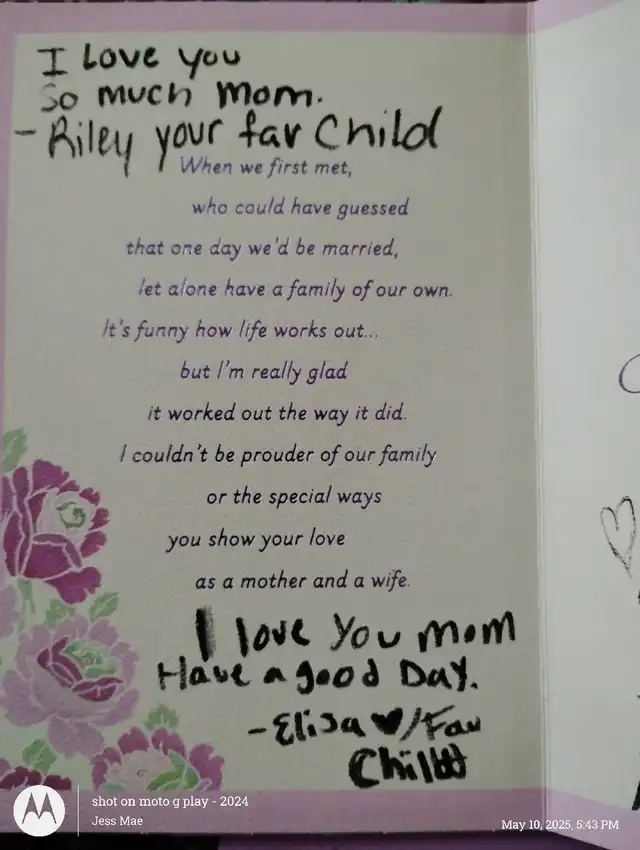 I Love you
So much Mom.
- Riley your fav Child
When we first met,
who could have guessed
that one day we'd be married,
let alone have a family of our own.
It's funny how life works out...
but I'm really glad
it worked out the way it did.
I couldn't be prouder of our family
or the special ways
you show your love
as a mother and a wife.
I love You mom
Have a good Day.
- Elisa ♥/Fav
Child
shot on moto g play - 2024
Jess Mae
May 10, 2025, 5:43 PM